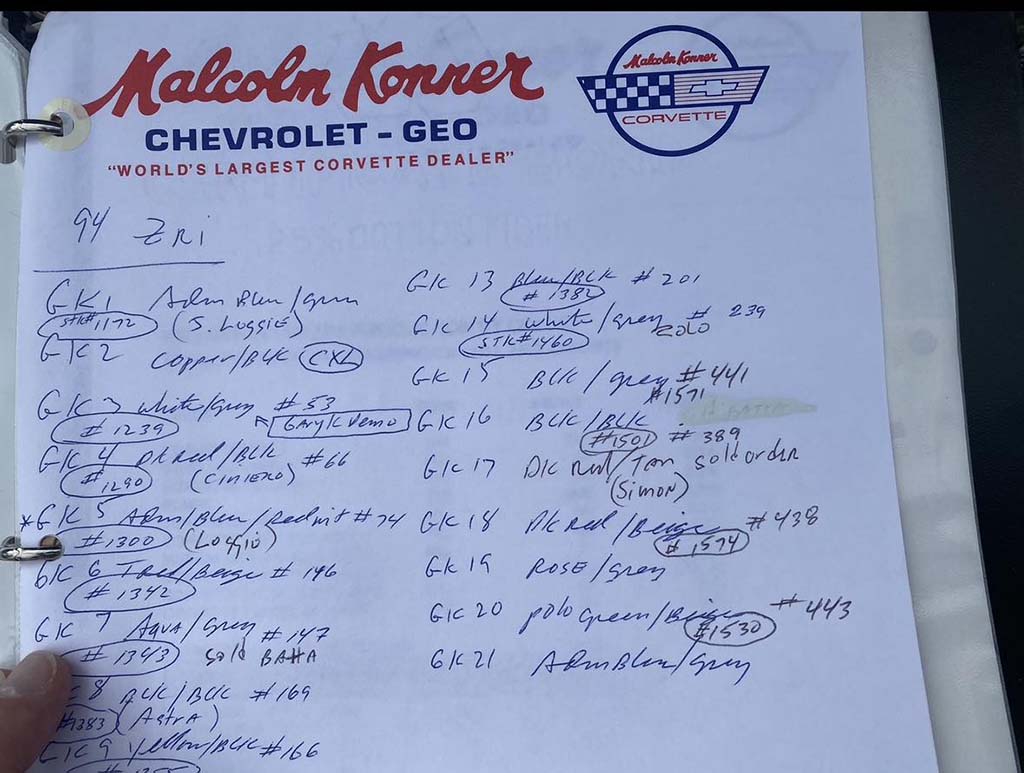 Malcolm Konner
CHEVROLET - GEO
"WORLD'S LARGEST CORVETTE DEALER"
Malcolm Konner
CORVETTE
94 ZR1
GK1 Adm Blue/grey
STK#1172 (S. Loggie)
GK2 copper/BLK CXL
GK3 white/grey #53
#1239 GARY K Demo
GK 4 DK Red/BLK #66
#1290 (Ciniero)
*GK 5 ADM/Blue/Redint #74
#1300 (Loggio)
GK 6 T Red/Beige #146
#1342
GK 7 AQUA/Grey #147
#1343 sold BAHA
8 BLK/BLK #169
#1383 (AstrA)
GK 9 Yellow/BLK #166
GK 13 Blue/BLK #201
#1382
GK 14 white/grey # 239
STK#1460 SOLD
GK 15 BLK/grey #441
#1571
GK 16 BLK/BLK
#1501 #389
GK 17 DK Red/TAN sold order
(Simon)
GK 18 DK Red/Beige #438
#1574
GK 19 ROSE/grey
GK 20 polo Green/Beige #443
#1530
GK21 ADM Blue/grey